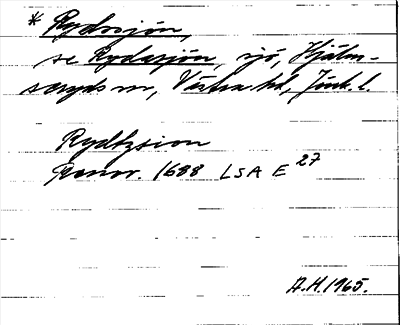 * Rydssjön,
se Rydasjön, sjö, Hjälm-
seryds sn, Västra hd, Jönk. l.
Rydtzsion
1688 LSA E 27
A.H. 1965.